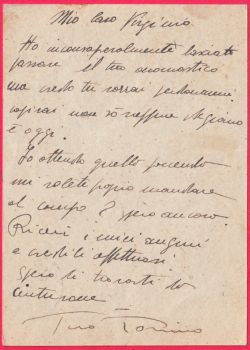 Mio caro Virginio.
Ho inconsapevolmente lasciato
passare il tuo onomastico
ma credo tu vorrai perdonarmi
capirai non so neppure che giorno
è oggi.
Io attendo quello
mi volete proprio mandare
al campo? Spero ancora.
Ricevi i miei auguri
e credili affettuosi
spero di trovarti
Tuo Tonino